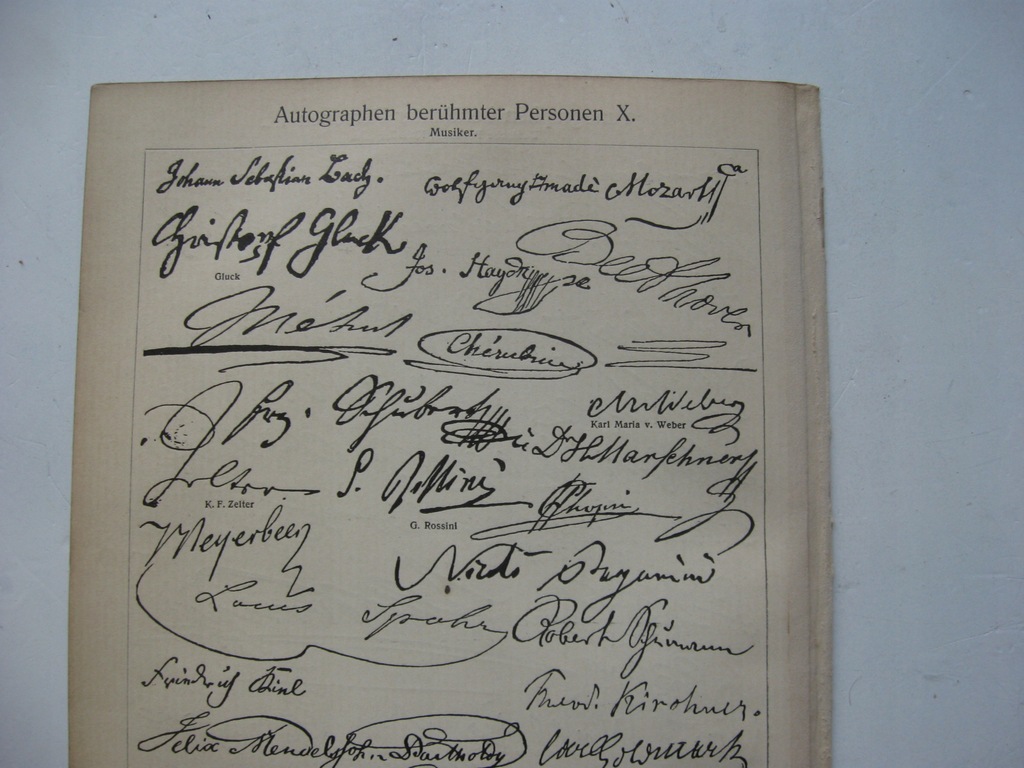 Autographen berühmter Personen X.
Musiker.
Johann Sebastian Bach.
Wolfgang Amadè Mozart
Christopf Gluck
Gluck
Jos. Haydn
Beethoven
Méhul
Chérubini
Frz. Schubert
CMvWeber
Karl Maria v. Weber
Dr H Marschner
Zelter
K. F. Zelter
G. Rossini
G. Rossini
Chopin
Meyerbeer
Nicolò Paganini
Louis Spohr
Robert Schumann
Friedrich Kiel
Theod. Kirchner.
Felix Mendelssohn Bartholdy
Carl Goldmark